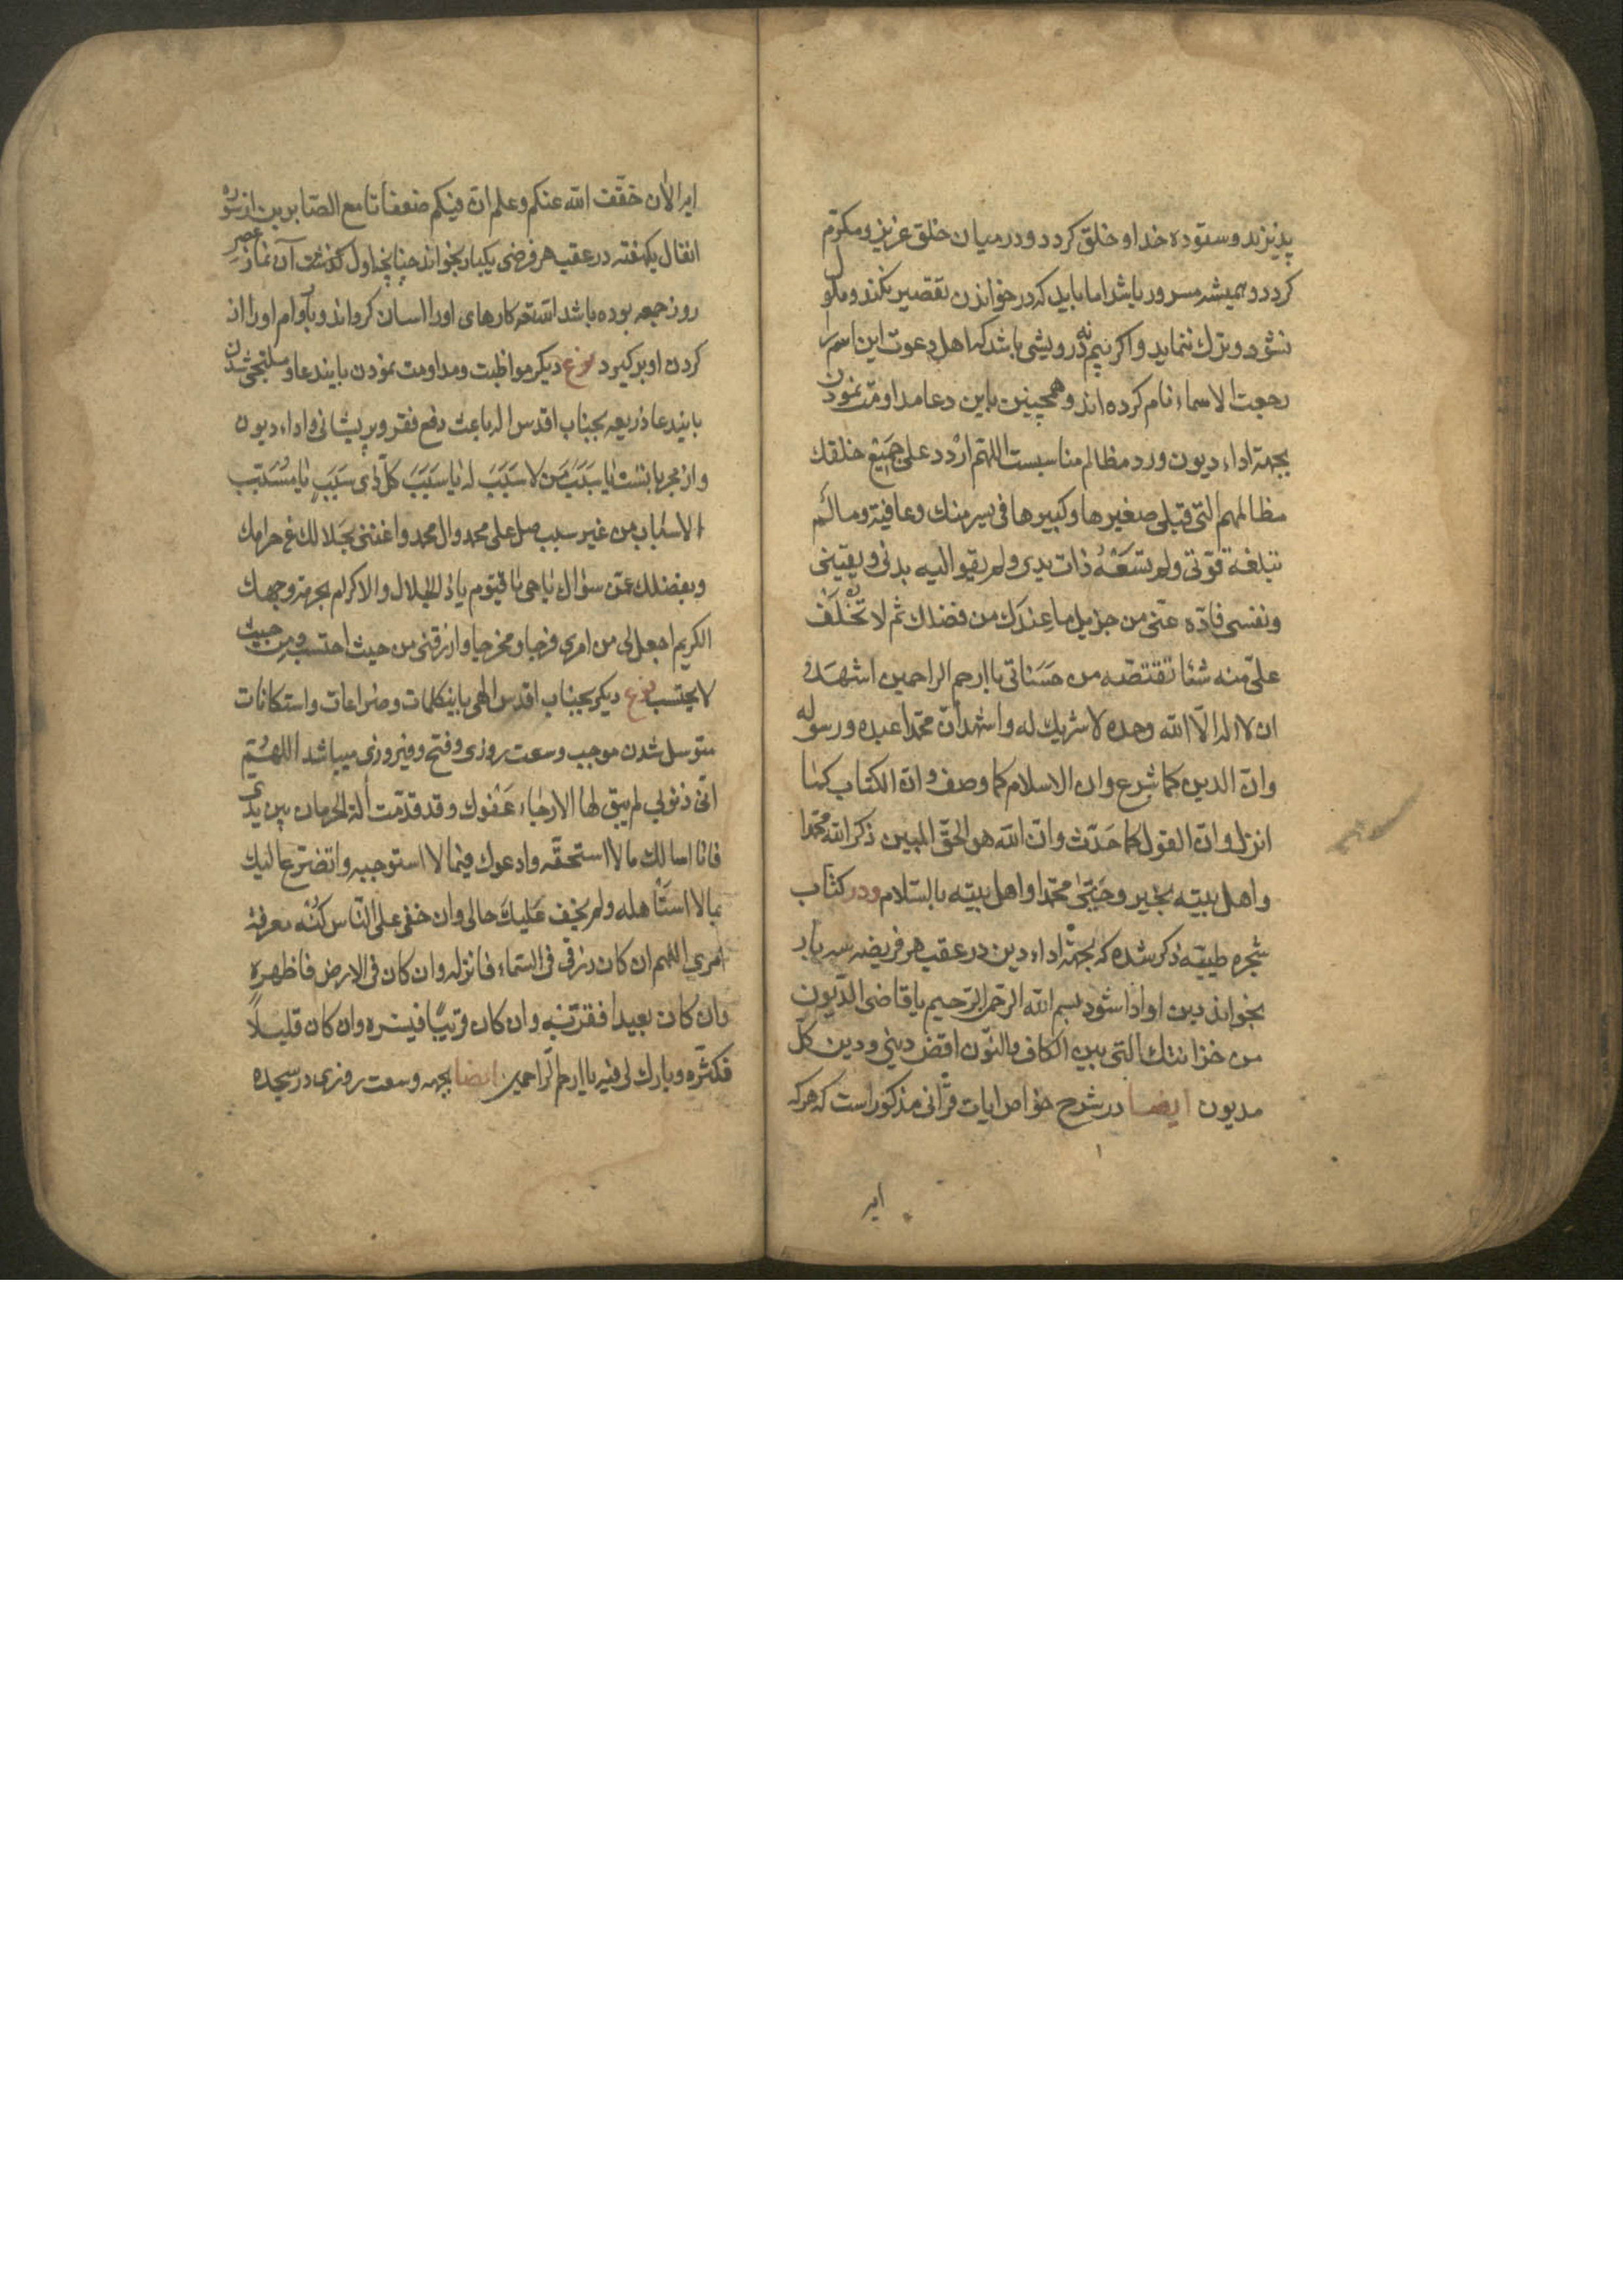 پذیزند و ستوده خدا و خلق کردد و در میان خلق عزیز و مکرّم
کردد و همیشه مسرور باشد اما باید که در خواندن تقصیر نکند و ملول
نشود و ترک ننماید و اکر بیم درویشی باشد که اهل دعوت این اسم را
رجعت الاسماء نام کرده اند و همچنین باین دعا مداومت نمودن
بجهة اداء دیون و رد مظالم مناسبست اللهم اردد علی جمیع خلقک
مظالمهم التی قبلی صغیرها و کبیرها فی یسر منک و عافیة و مالم
تبلغه قوتی و لم تسعه ذات یدی و لم یقو الیه بدنی و یقینی
و نفسی فادّه عنّی من جزیل ما عندک من فضلک ثم لا تخلف
علیّ منه شئا تقتضه من حسناتی یا ارحم الراحمین اشهد
ان لا اله الّا الله وحده لا شریک له و اشهد أنّ محمّدا عبده و رسوله
و انّ الدین کما شرع و ان الاسلام کما وصف و انّ الکتاب کما
انزل و انّ القول کما حدّث و انّ الله هو الحقّ المبین ذکر الله محمّدا
و اهل بیته بخیر و حیّی محمّدا و اهل بیته بالسّلام و در کتاب
شجره طیبّه ذکر شده که بجهة اداء دین در عقب هر فریضه سه بار
بخواند دین او ادا شود بسم الله الرّحمن الرّحیم یا قاضی الدّیون
من خزانتک التی بین الکاف و النّون اقض دینی و دین کلّ
مدیون ایضا در شرح خواص ایات قرّانی مذکور است که هر که
ایر
ایرا لأن خفّف الله عنکم و علم انّ فیکم ضعفا تا مع الصّابرین از سوره
انفال یکهفته در عقب هر فرضی یکبار بخواند چنانچه اول کذشت آن نماز عصر
روز جمعه بوده باشد الله کارهای او را اسان کرداند و بار وام او را از
کردن او بر کیرد نوع دیکر مواظبت و مداومت نمودن بایندعا و ملتجی شدن
بایندعا ذریعه بجناب اقدس اله باعث دفع فقر و پریشانی و اداء دیون
و از مجرباتست یا سبب من لا سبب له یا سبب کلّ ذی سبب یا مسبّب
الاسباب من غیر سبب صل علی محمد و ال محمد و اغننی بحلالک عن حرامک
و بفضلک عمّن سؤال یا حی یا قیّوم یا ذالجلال و الاکرام بحرمة وجهک
الکریم اجعل لی من امری فرجا و مخرجا و ارزقنی من حیث احتسب و من حیث
لا یحتسب نوع دیکر بجناب اقدس الهی باینکلمات و ضراعات و استکانات
متوسل شدن موجب وسعت روزی و فتح و فیروزی میباشد اللهمّ
انّی ذنوبی لم یبق لها الا رجاء عفوک و قد قدّمت ألة الحرمان بین یدیّ
فانا اسالک ما لا استحقّه و ادعوک فیما لا استوجبه و اتضرّع الیک
بما لا استاهله و لم یخف علیک حالی و ان خفی علی النّاس کنه معرفة
امری اللهم ان کان رزقی فی السّماء فانزله و ان کان فی الارض فاظهره
و ان کان بعیدا فقرّبه و ان کان قریبًا فیسّره و ان کان قلیلًا
فکثّره و بارک لی فیه یا ارحم الّراحمین ایضا بجهه وسعت روزی در سجده